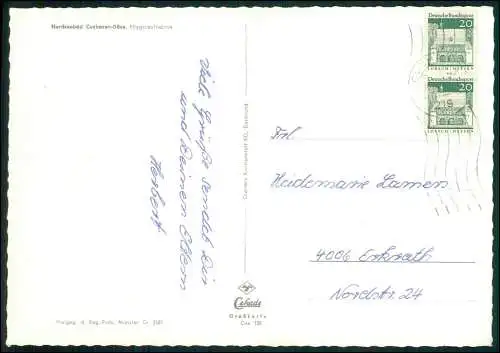 Nordseebad Cuxhaven-Döse, Fliegeraufnahme
Viele Grüße sendet Dir
und Deinen Eltern
Herbert
Cramers Kunstanstalt KG, Dortmund
Cekade
Großkarte
Cux 130
Freigeg. d. Reg.-Präs. Münster Gr. 2581
Deutsche Bundespost
20
LORSCH · HESSEN
Deutsche Bundespost
20
LORSCH · HESSEN
Frl.
Heidemarie Lamen
4006 Erkrath
Nordstr. 24